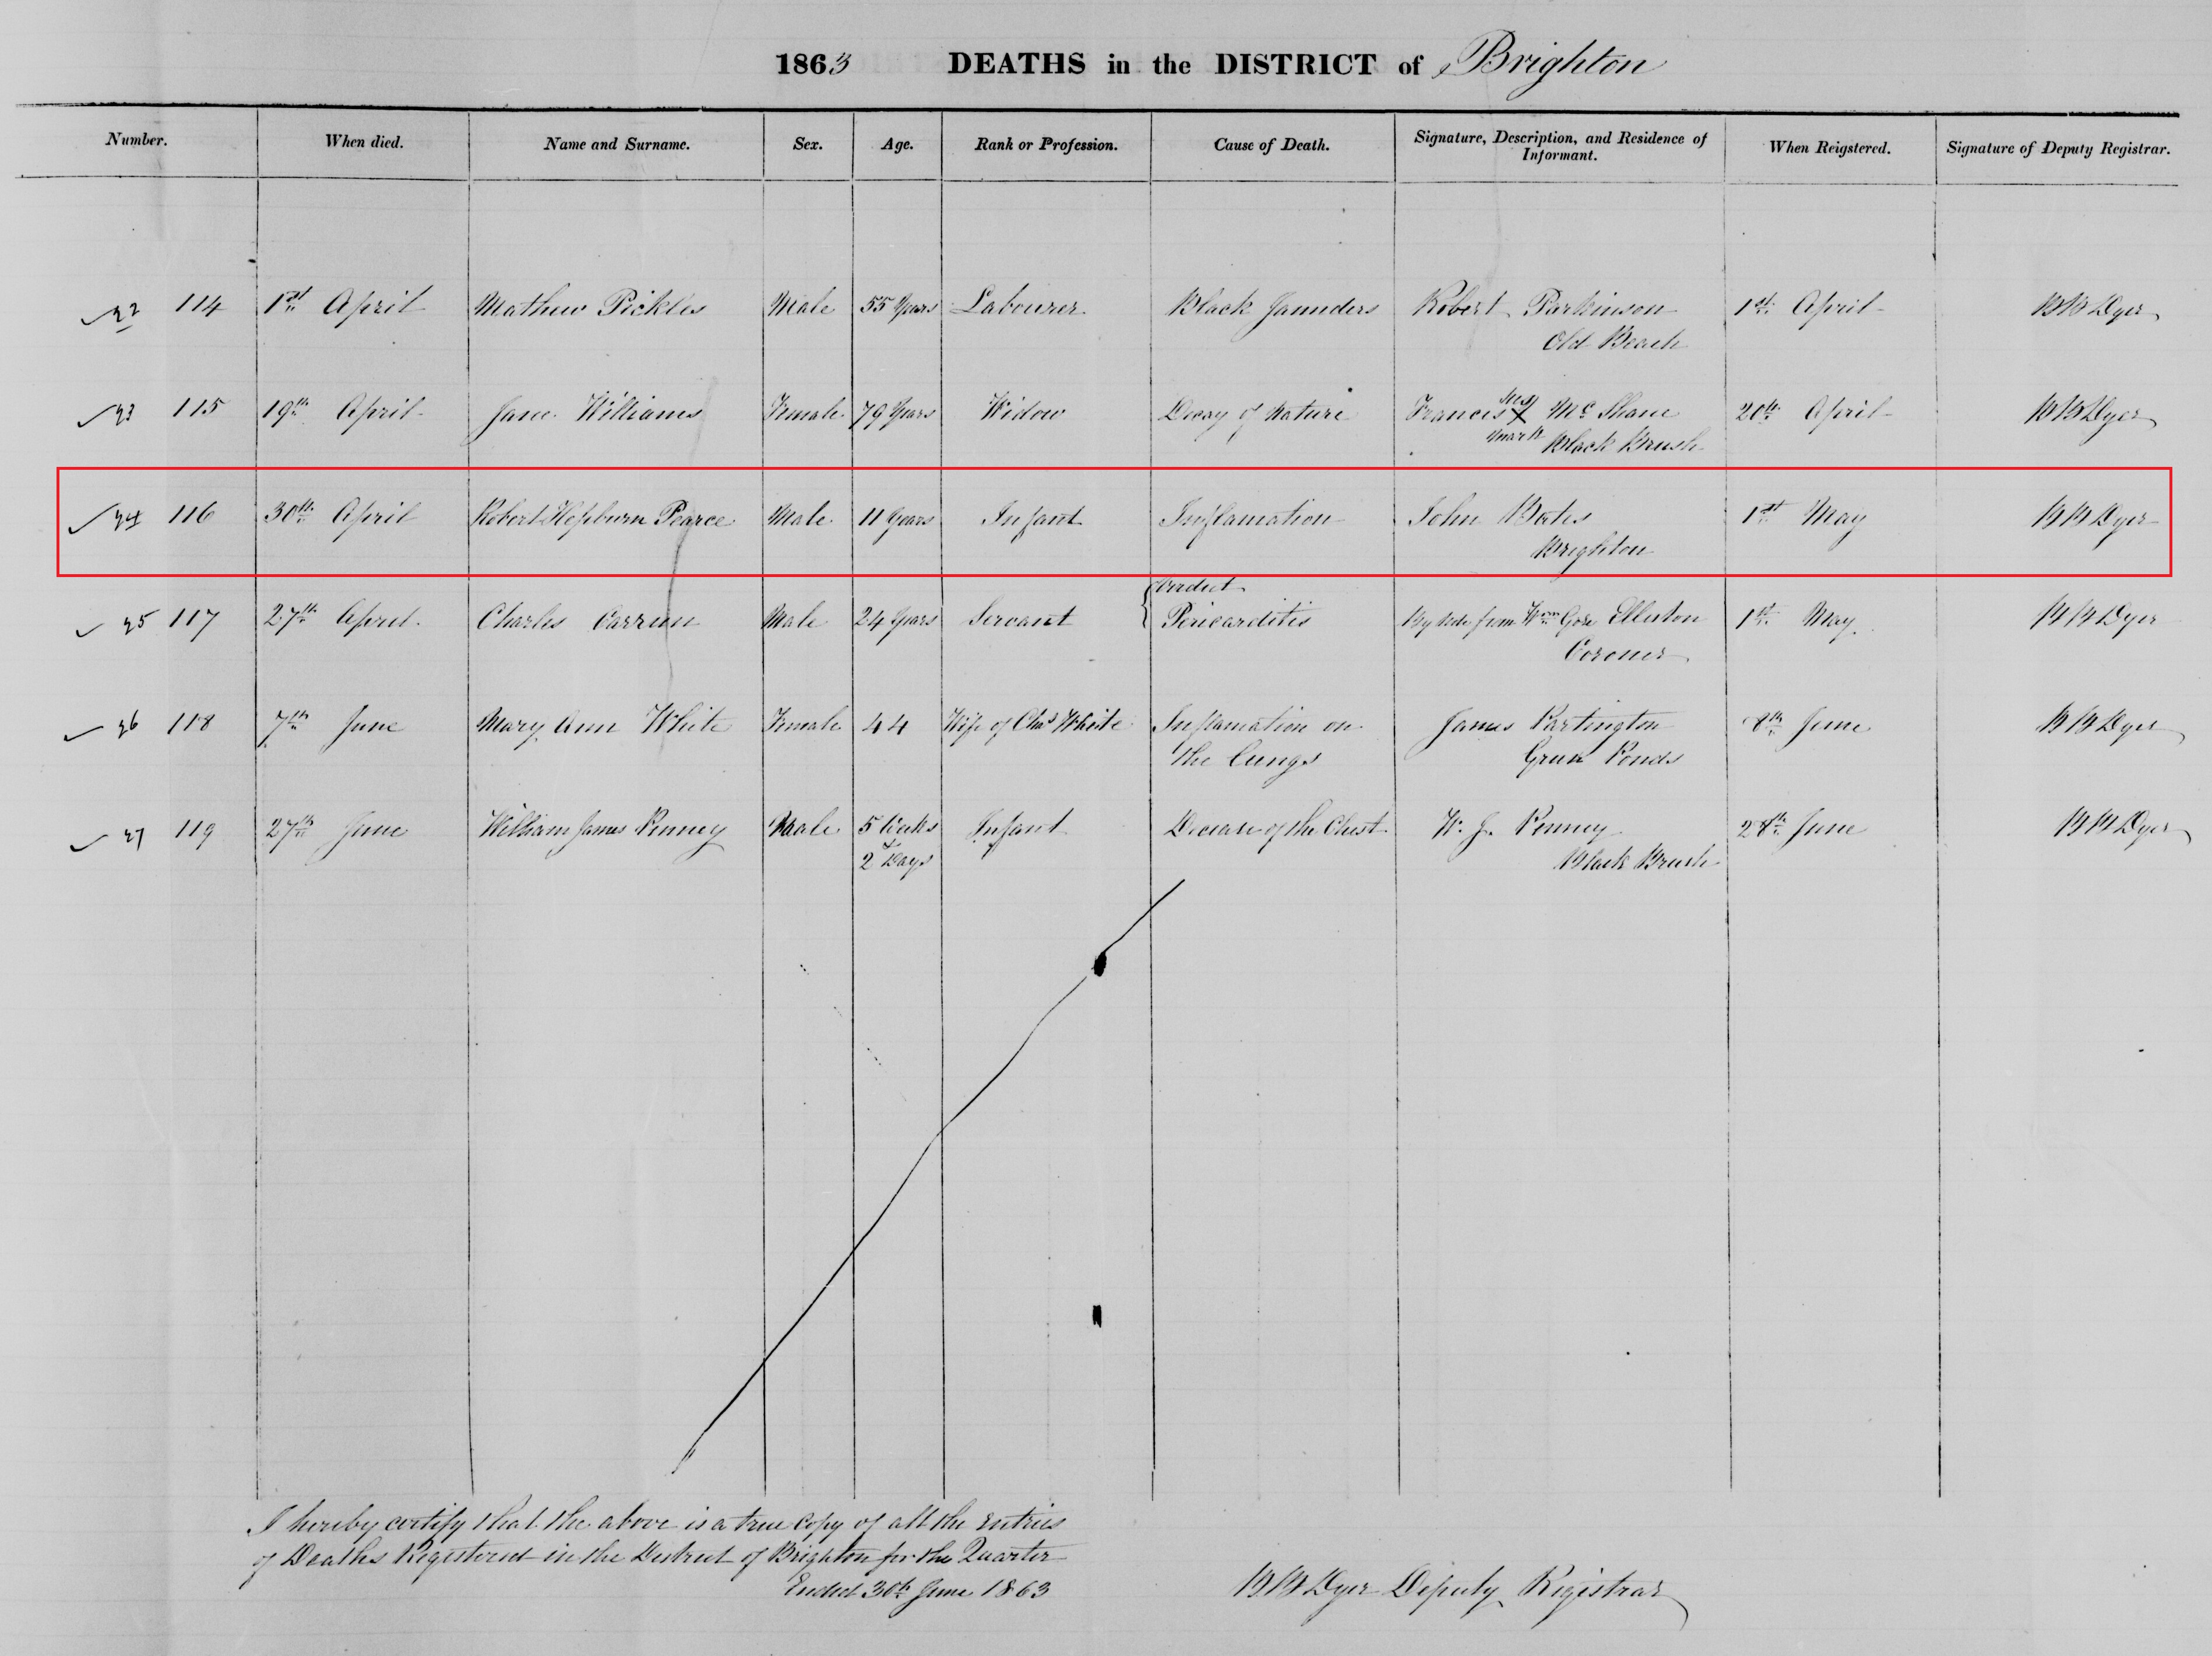 1863 DEATHS in the DISTRICT of Brighton
Number. When died. Name and Surname. Sex. Age. Rank or Profession. Cause of Death. Signature, Description, and Residence of Informant. When Reigstered. Signature of Deputy Registrar.
114 1st April Mathew Pickles Male 55 Years Labourer Black Jaunders Robert Parkinson 1st April Dyer
Old Beach
115 19th April Jane Williams Female 79 Years Widow Decay of Nature Francis X Mc Shane 20th April Dyer
mark Black Brush
116 30th April Robert Hepburn Pearce Male 11 Years Infant Inflamation John Bates 1st May Dyer
Brighton
Verdict
117 27th April Charles Male 24 Years Servant Pericarditis from Wm Gore Elliston 1st May Dyer
Coroner
118 7th June Mary Ann White Female 44 Wife of Chas White Inflamation on James Partington 8th June Dyer
the Lungs
119 27th June William James Penney Male 5 Weeks Infant Decease of the Chest W. J. Penney 28th June Dyer
2 Days Black Brush
I hereby certify that the above is a true Copy of all the Entries
of Deaths Registered in the District of Brighton for the Quarter
Ended 30th June 1863
Dyer Deputy Registrar